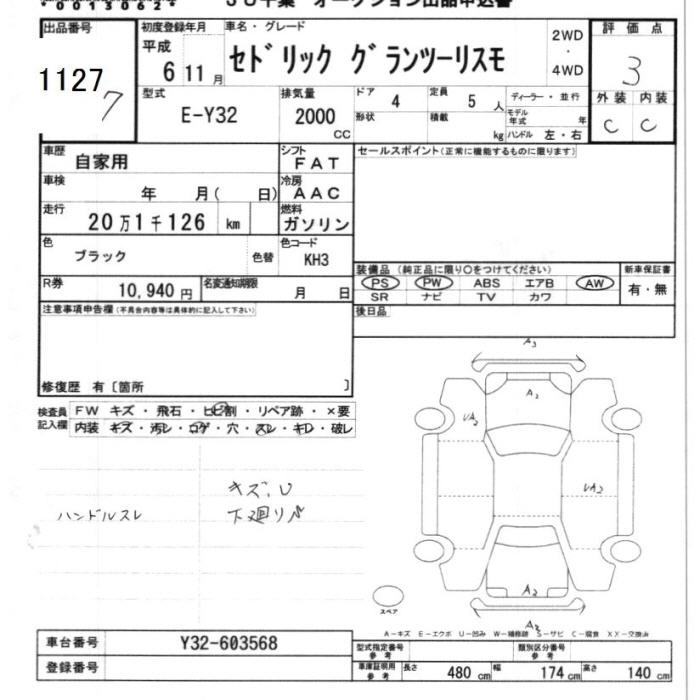 *00150624*
JU千葉 オークション出品申込書
出品番号
11277
初度登録年月
平成
6 11 月
車名・グレード
セドリック グランツーリスモ
2WD
・
4WD
評価点
3
外装 内装
C C
型式
E-Y32
排気量
2000
CC
ドア
4
定員
5 人
ディーラー・並行
形状
積載
kg
モデル年式
年
ハンドル 左・右
車歴
自家用
シフト
FAT
セールスポイント(正常に機能するものに限ります)
車検
年 月( 日)
冷房
AAC
走行
20万1千126 km
燃料
ガソリン
色
ブラック
色替
色コード
KH3
装備品 (純正品に限り○をつけてください)
新車保証書
PS PW ABS エアB AW
有・無
SR ナビ TV カワ
R券
10,940 円
名変通知期限
月 日
後日品
注意事項申告欄(不具合内容等は具体的に記入して下さい)
修復歴 有〔箇所 〕
検査員
記入欄
FW キズ・飛石・ヒビ割・リペア跡・×要
内装 キズ・汚レ・コゲ・穴・スレ・キレ・破レ
キズ、U
ハンドルスレ
下廻りパ
A3
A2
VA2
VA2
A2
A2
スペア
A-キズ E-エクボ U-凹み W-補修跡 S-サビ C-腐食 XX-交換済
車台番号
Y32-603568
型式指定番号
参考
類別区分番号
参考
登録番号
車庫証明用
参考
長さ
480 cm
幅
174 cm
高さ
140 cm